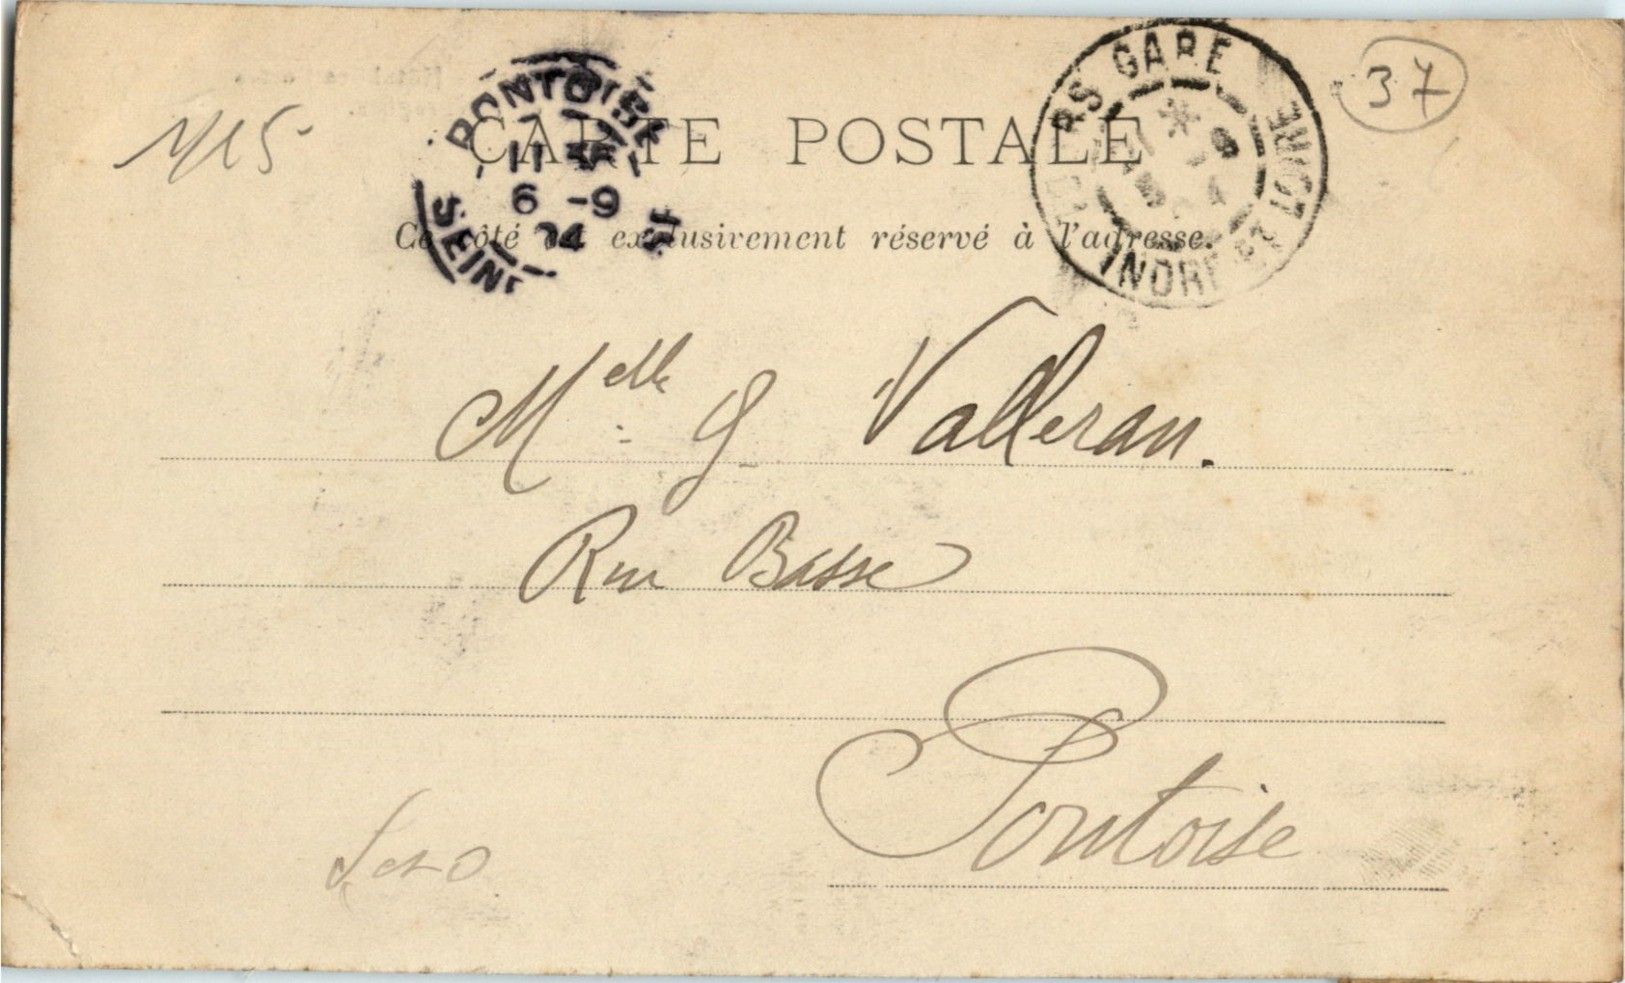 37
CARTE POSTALE
Ce côté est exclusivement réservé à l'adresse.
PONTOISE
11
6 -9
04
SEINE
RS GARE
INDRE ET LOIRE
Melle G Valleran.
Rue Basse
Pontoise